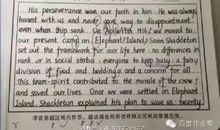 His perseverance won our faith in him. He was always
honest with us and never gave way to disappointment
even when ship sank. On Hill, we moved to
our present camp on Elephant Island. Soon Shackleton
set out the framework for our life here: no differences in
rank or in social status, everyone to keep busy, a fairy
division of food and bedding and a concern for all.
This team-spirit contributed to the morale of the crew
and saved our lives. Once we settled on Elephant
Island, Shackleton explained his plan to save us: twenty
请在各题目的答题区域内作答,
百度作业帮